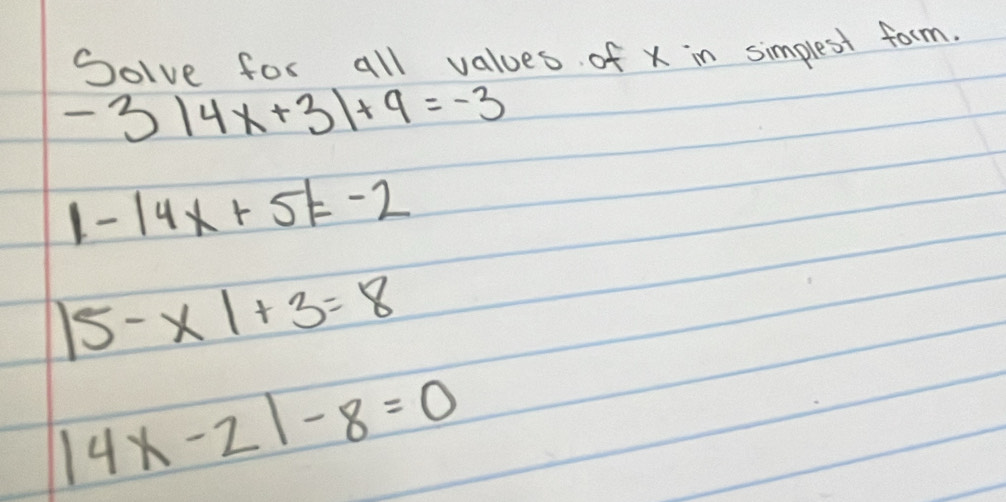 Solve for all values of x in simplest form.
-3|4x+3|+9=-3
1-|4x+5|=-2
|5-x|+3=8
|4x-2|-8=0